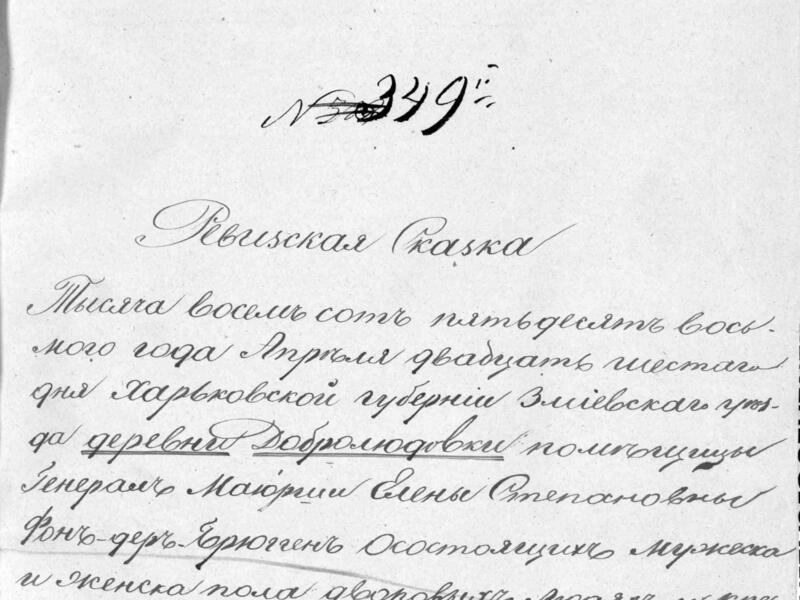 № 349й
Ревизская Сказка
Тысяча восемъ сотъ пятьдесятъ вось-
мого года Апрѣля двадцать шестаго
дня Харьковской губерніи Зміевскаго уѣз-
да деревни Добролюбовки помѣщицы
Генералъ Маіорши Елены Степановны
Фонъ-деръ-Брюггенъ осостоящихъ мужеска
и женска пола дворовыхъ людяхъ и